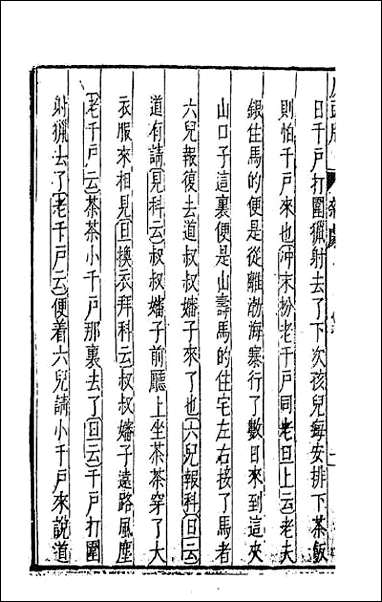 日千戶打圍獵射去了下次孩兒每安排下茶飯
則怕千戶來也沖末扮老千戶同老旦上云老夫
銀住馬的便是從離渤海寨行了數日來到這夾
山口子這裏便是山壽馬的住宅左右接了馬者
六兒報復去道叔叔嬸子來了也六兒報科旦云
道有請見科云叔叔嬸子前廳上坐茶茶穿了大
衣服來相見旦換衣拜科云叔叔嬸子遠路風塵
老千戶云茶茶小千戶那裏去了旦云千戶打圍
射獵去了老千戶云便着六兒請小千戶來說道